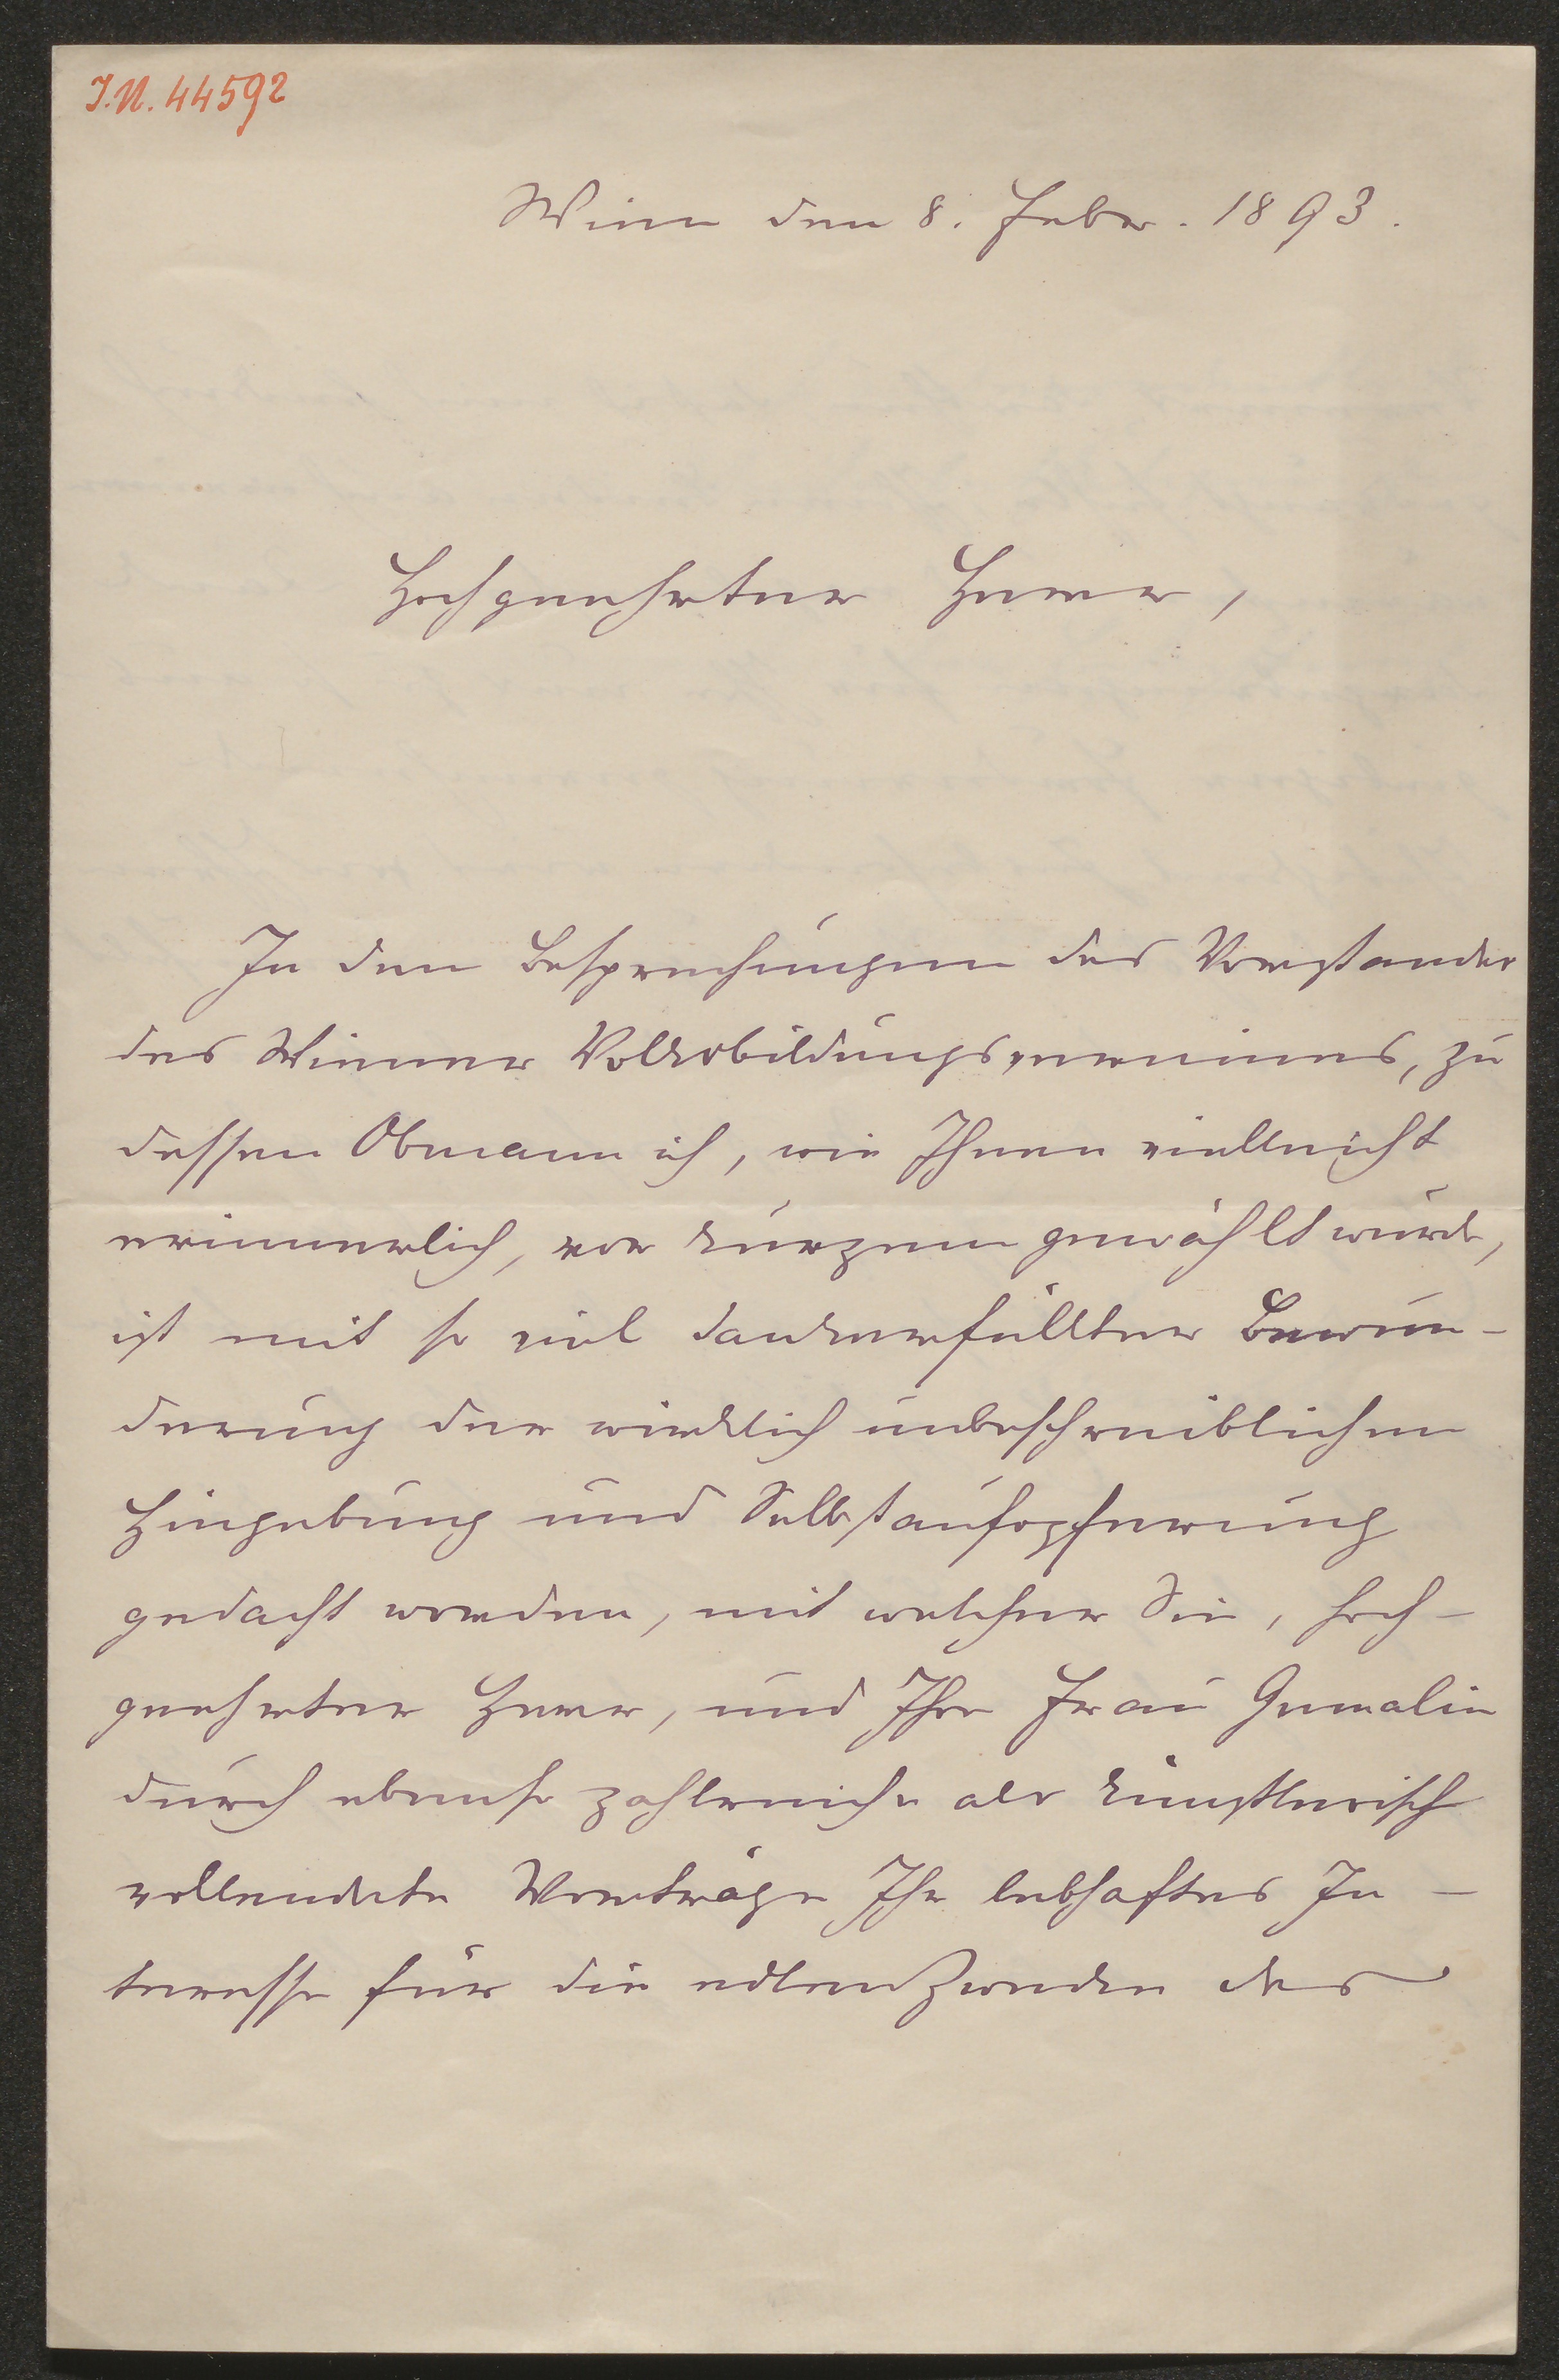 I.N. 44592
Wien den 8. Febr. 1893.
Hochgeehrter Herr,
In den Besprechungen des Vorstandes
des Wiener Volksbildungsvereines, zu
dessen Obmann ich, wie Ihnen vielleicht
erinnerlich, vor kurzem gewählt wurde,
ist mit so viel dankerfüllter Bewun-
derung der wirklich unbeschreiblichen
Hingebung und Selbstaufopferung
gedacht worden, mit welcher Sie, hoch-
geehrter Herr, und Ihre Frau Gemalin
durch ebenso zahlreiche als künstlerisch
vollendete Vorträge Ihr lebhaftes In-
teresse für die edlen Zwecke des